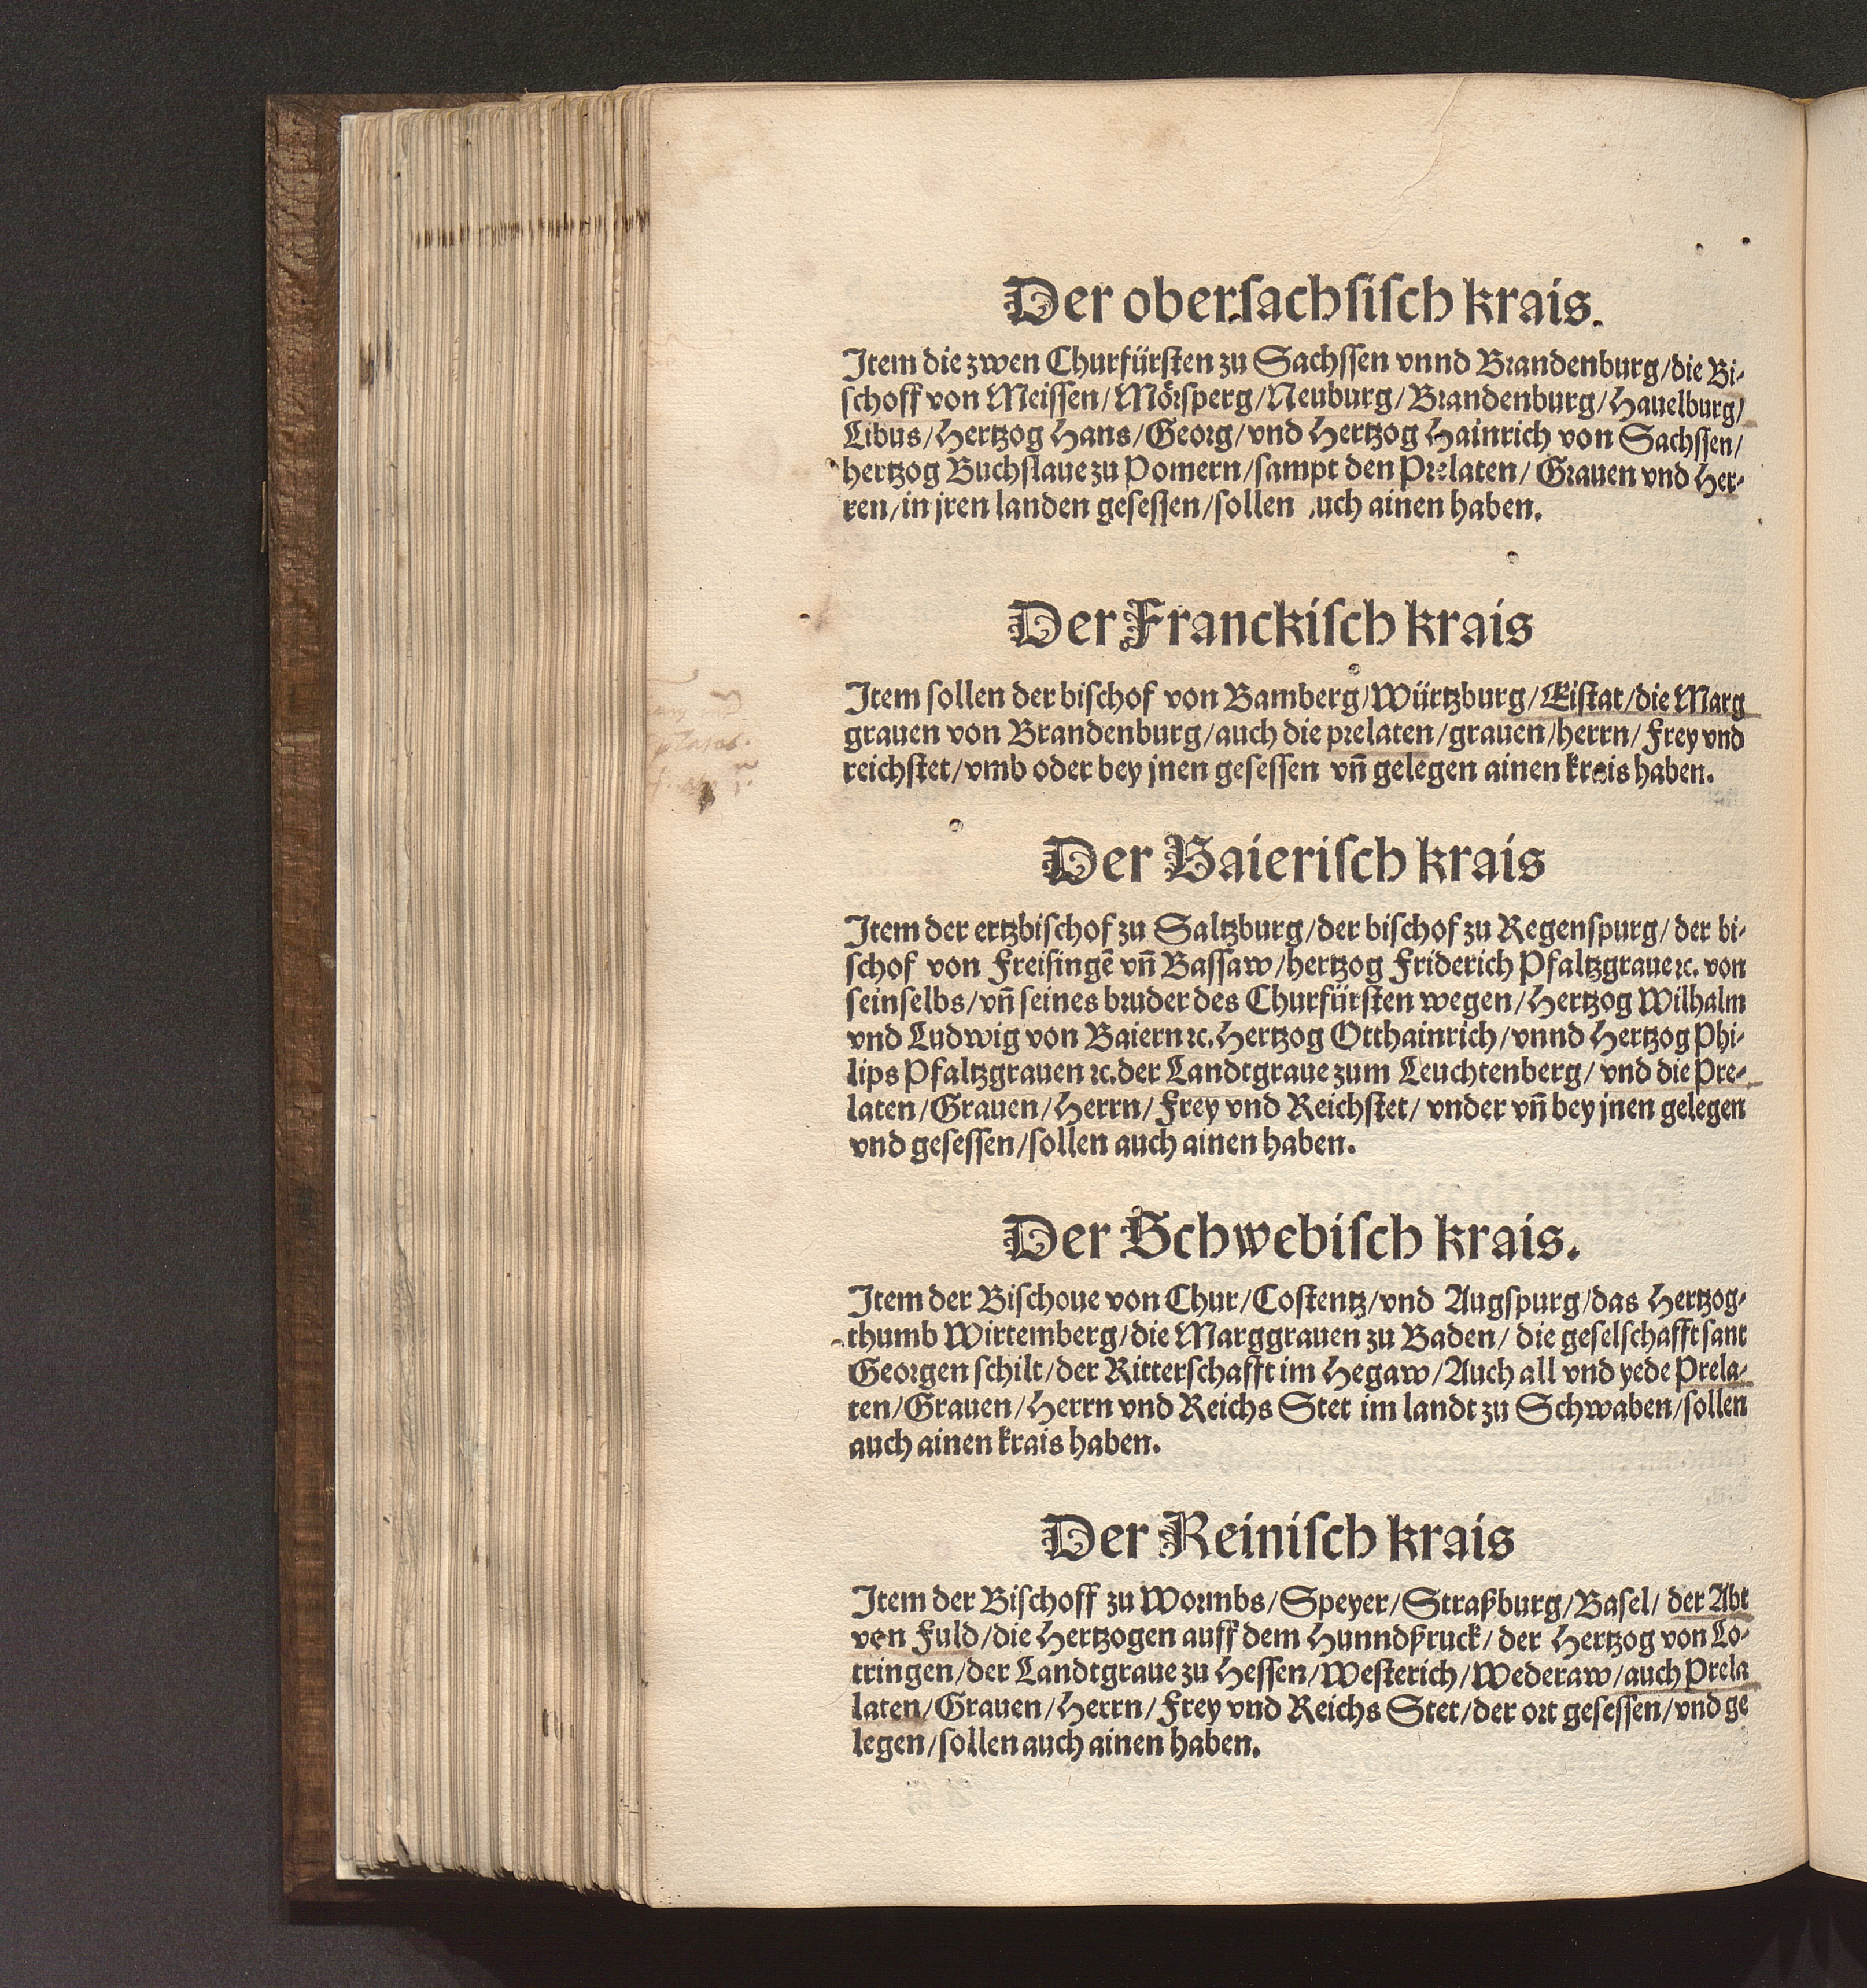 Der obersachsisch krais.
Item die zwen Churfürsten zu Sachssen vnnd Brandenburg/die Bi-
schoff von Meissen/Mörsperg/Neuburg/Brandenburg/Hauelburg/
Libus/Hertzog Hans/Georg/vnd Hertzog Hainrich von Sachssen/
hertzog Buchslaue zu Pomern/sampt den Prelaten/Grauen vnd Her-
ren/in jren landen gesessen/sollen uch ainen haben.
Der Franckisch krais
Item sollen der bischof von Bamberg/Würtzburg/Eistat/die Marg
grauen von Brandenburg/auch die prelaten/grauen/herrn/Frey vnd
reichstet/vmb oder bey jnen gesessen vn̄ gelegen ainen krais haben.
Der Baierisch krais
Item der ertzbischof zu Saltzburg/der bischof zu Regenspurg/der bi-
schof von Freisingē vn̄ Bassaw/hertzog Friderich Pfaltzgraue ꝛc. von
seinselbs/vn̄ seines bruder des Churfürsten wegen/Hertzog Wilhalm
vnd Ludwig von Baiern ꝛc. Hertzog Otthainrich/vnnd Hertzog Phi-
lips Pfaltzgrauen ꝛc. der Landtgraue zum Leuchtenberg/vnd die Pre-
laten/Grauen/Herrn/Frey vnd Reichstet/vnder vn̄ bey jnen gelegen
vnd gesessen/sollen auch ainen haben.
Der Schwebisch krais.
Item der Bischoue von Chur/Costentz/vnd Augspurg/das Hertzog-
thumb Wirtemberg/die Marggrauen zu Baden/die geselschafft sant
Georgen schilt/der Ritterschafft im Hegaw/Auch all vnd yede Prela-
ten/Grauen/Herrn vnd Reichs Stet im landt zu Schwaben/sollen
auch ainen krais haben.
Der Reinisch krais
Item der Bischoff zu Wormbs/Speyer/Straßburg/Basel/der Abt
von Fuld/die Hertzogen auff dem Hunndßruck/der Hertzog von Lo-
tringen/der Landtgraue zu Hessen/Westerich/Wederaw/auch Prela
laten/Grauen/Herrn/Frey vnd Reichs Stet/der ort gesessen/vnd ge
legen/sollen auch ainen haben.